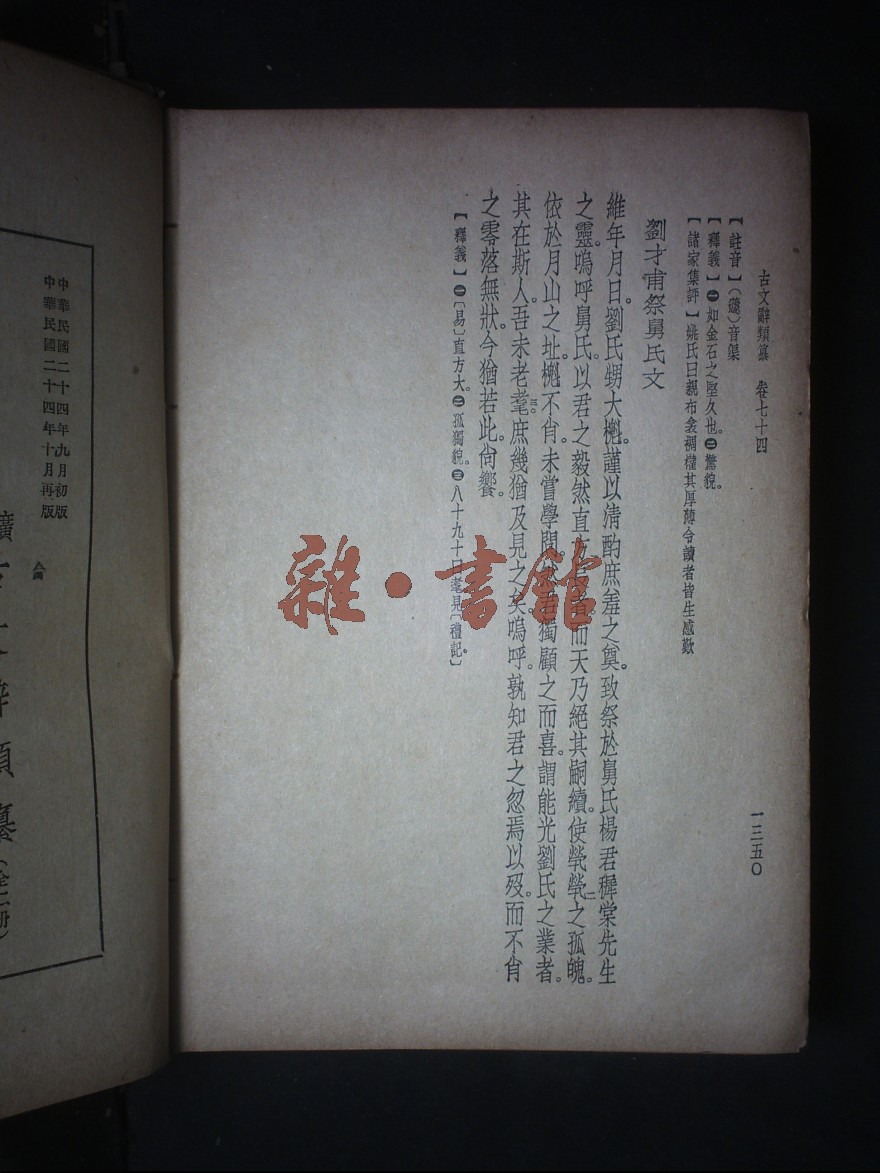 古文辭類纂　卷七十四
一三五〇
【註音】（蘧）音渠
【釋義】㊀如金石之堅久也。㊁驚貌。
【諸家集評】姚氏曰親布衾裯權其厚薄令讀者皆生感歎
劉才甫祭舅氏文
維年月日。劉氏甥大櫆。謹以淸酌庶羞之奠。致祭於舅氏楊君穉棠先生
之靈。嗚呼舅氏。以君之毅然直㊀長者而天乃絕其嗣續。使煢煢㊁之孤魄。
依於月山之址。櫆不肖。未嘗學問。君獨顧之而喜。謂能光劉氏之業者。
其在斯人。吾未老耄㊂。庶幾猶及見之矣。嗚呼。孰知君之忽焉以歿。而不肖
之零落無狀。今猶若此。尙饗。
【釋義】㊀〔易〕直方大。㊁孤獨貌。㊂八十九十曰耄見〔禮記。〕
雜・書館
中華民國二十四年九月初版
中華民國二十四年十月再版
古文辭類纂（全二册）